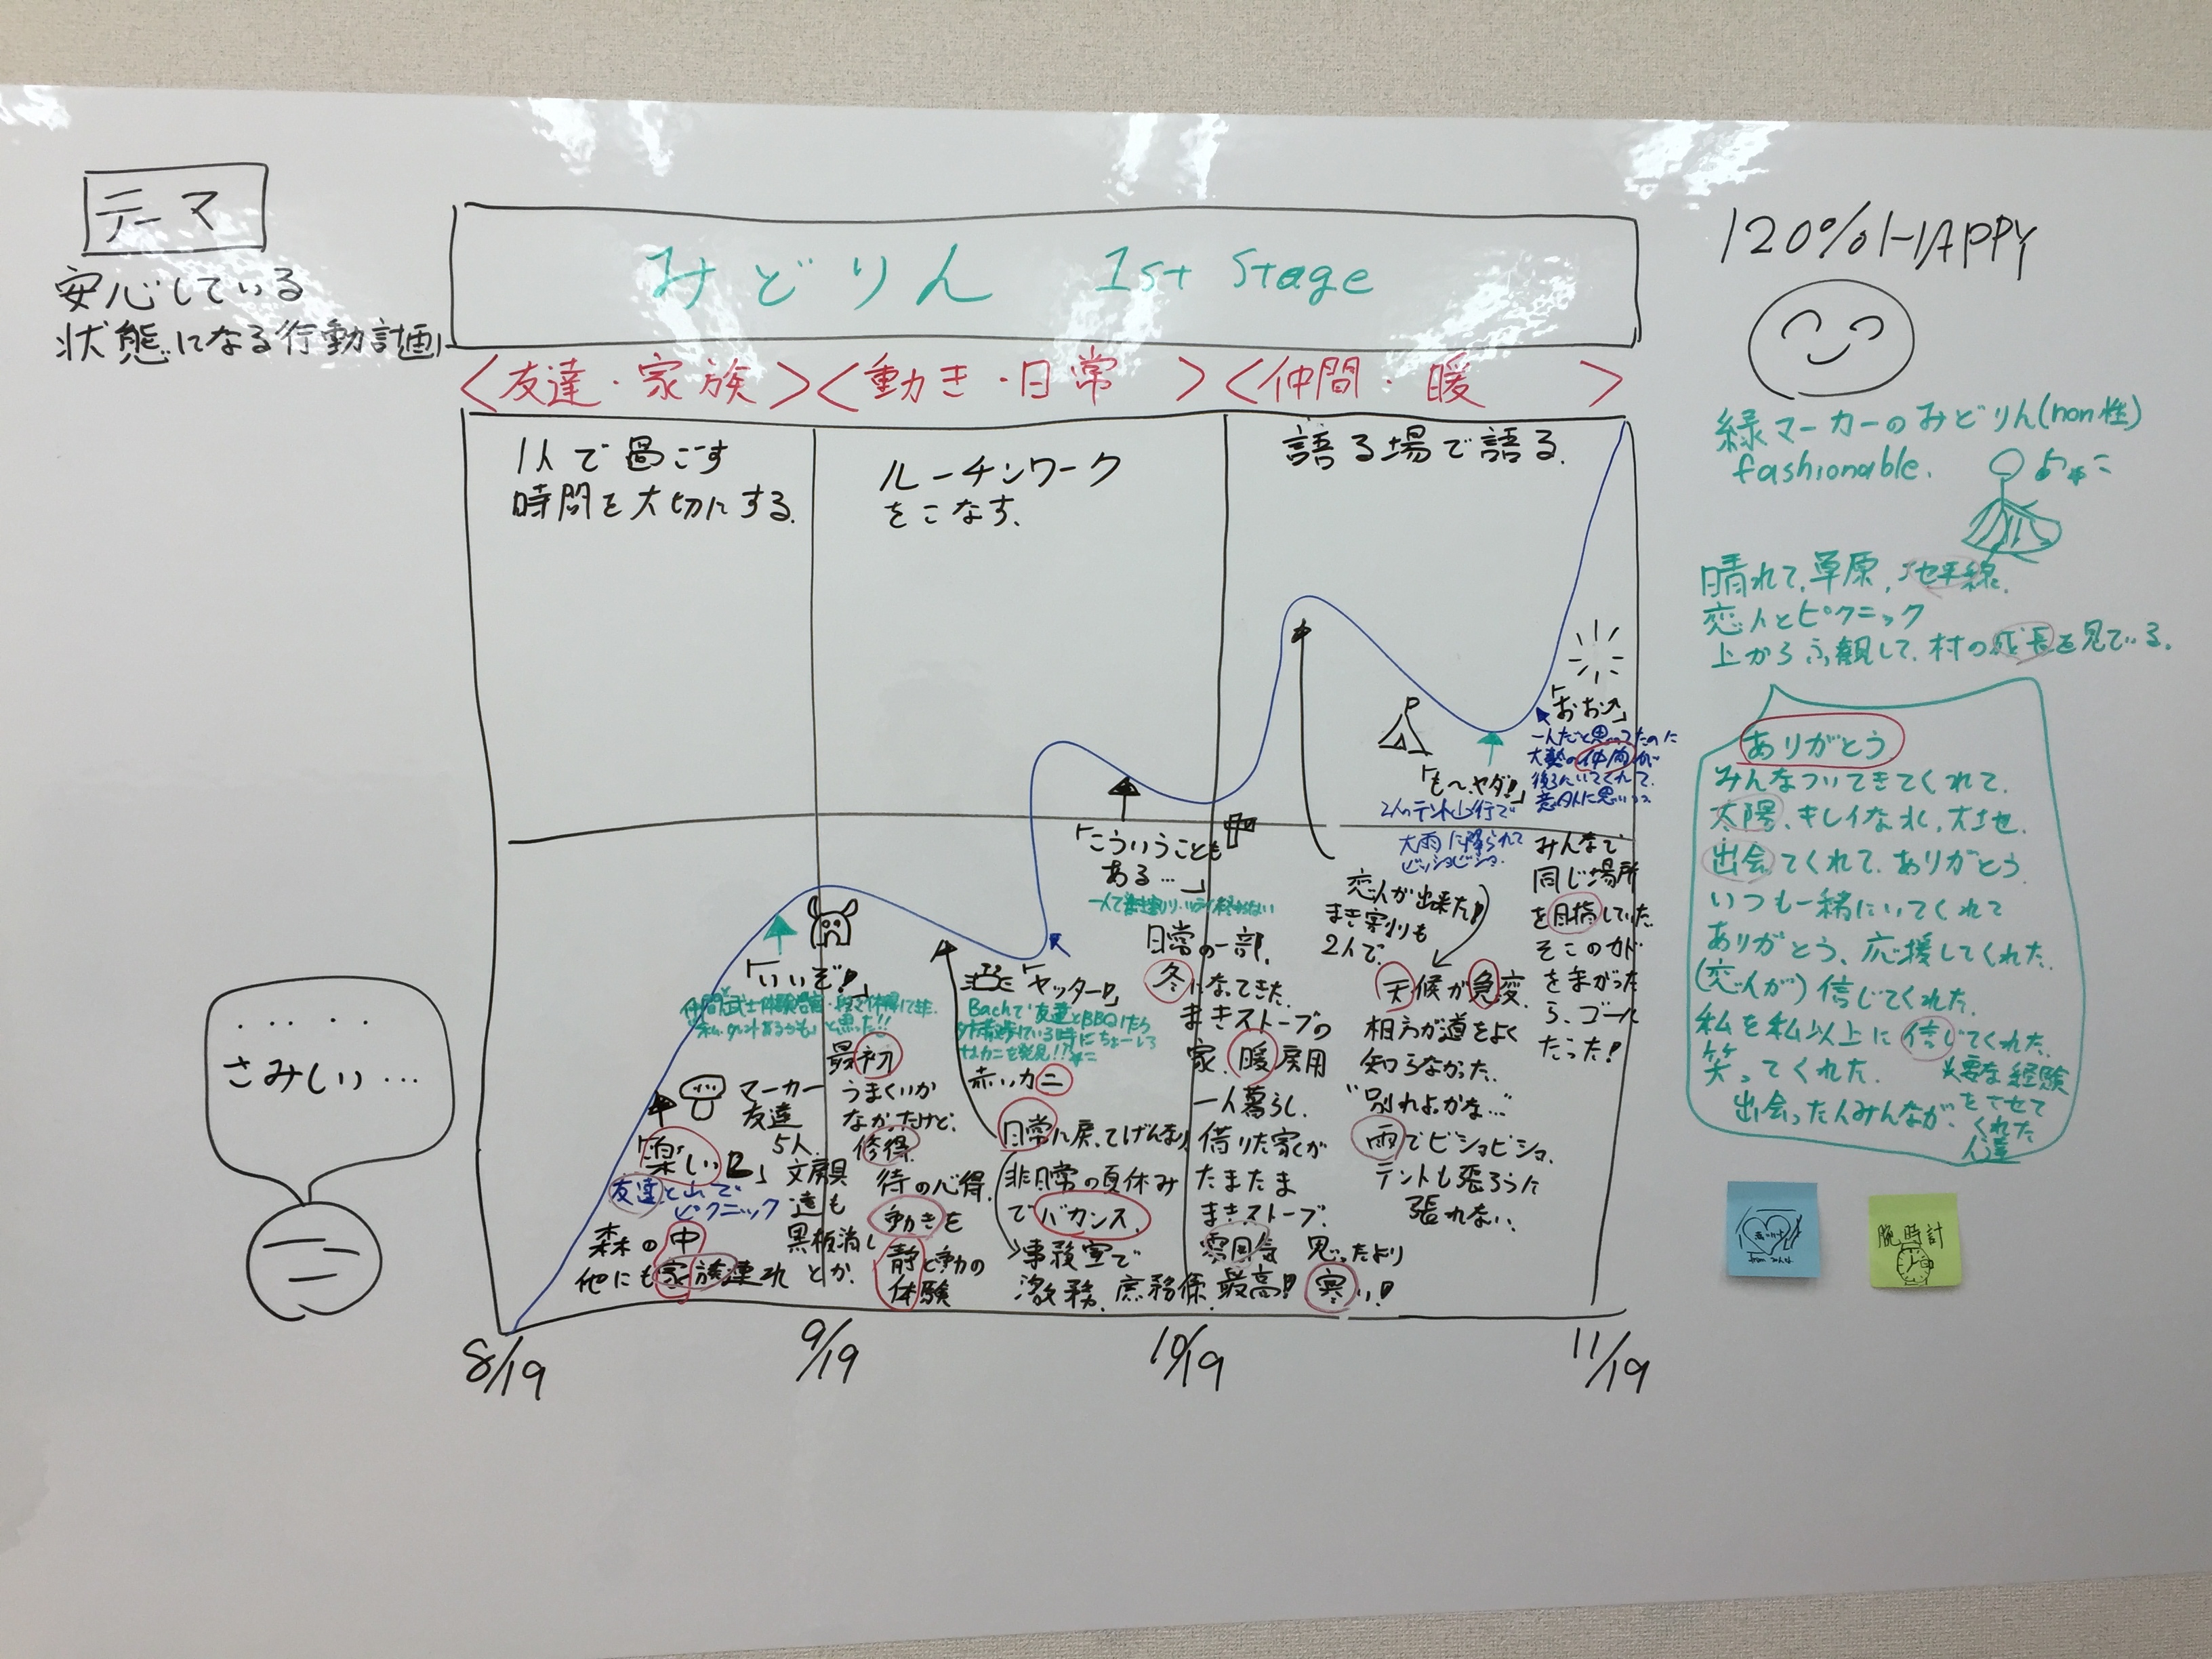 テーマ
安心している
状態になる行動計画
みどりん 1st Stage
<友達・家族><動き・日常><仲間・暖>
1人で過ごす
時間を大切にする.
ルーチンワーク
をこなす.
語る場で語る.
120%HAPPY
緑マーカーのみどりん(non性)
fashionable.
晴れて,草原,地平線.
恋人とピクニック
上からふ観して,村の成長を見ている.
ありがとう
みんなついてきてくれて.
太陽,キレイな水,大地.
出会てくれて.ありがとう
いつも一緒にいてくれて
ありがとう、応援してくれた.
(恋人が)信じてくれた.
私を私以上に信じてくれた.
笑ってくれた.
必要な経験
をさせて
くれた
人達
出会った人みんなが、
腕時計
.....
さみしい...
「楽しい」
友達と山で
ピクニック
森の中
他にも家族連れ
マーカー
友達
5人.
文房具
達も
黒板消し
とか.
「いいぞ!」
最初
うまくいか
なかったけど,
修得.
動きを
静と動の
体験
「ヤッター!」
Bachで友達とBBQしたら
赤いカニ
日常に戻ってげんなり
非日常の夏休み
でバカンス.
事務室で
激務.庶務係.
「こういうことも
ある…」
日常の一部.
冬になってきた.
まきストーブの
家.暖房用
一人暮らし.
借りた家が
たまたま
まきストーブ.
雰囲気
最高!
思ったより
寒い!
恋人が出来た!
まき割りも
2人で.
「も〜、ヤダ!」
大雨に降られて
ビッショビショ.
天候が急変.
相方が道をよく
知らなかった.
"別れよかな…"
雨でビショビショ.
テントも張ろうに
張れない.
「おおっ」
一人だと思ってたのに
大勢の仲間が
後ろにいてくれて.
意外に思いつつ
みんなで
同じ場所
を目指していた.
そこのカド
を曲がった
ら、ゴール
だった!
8/19
9/19
10/19
11/19